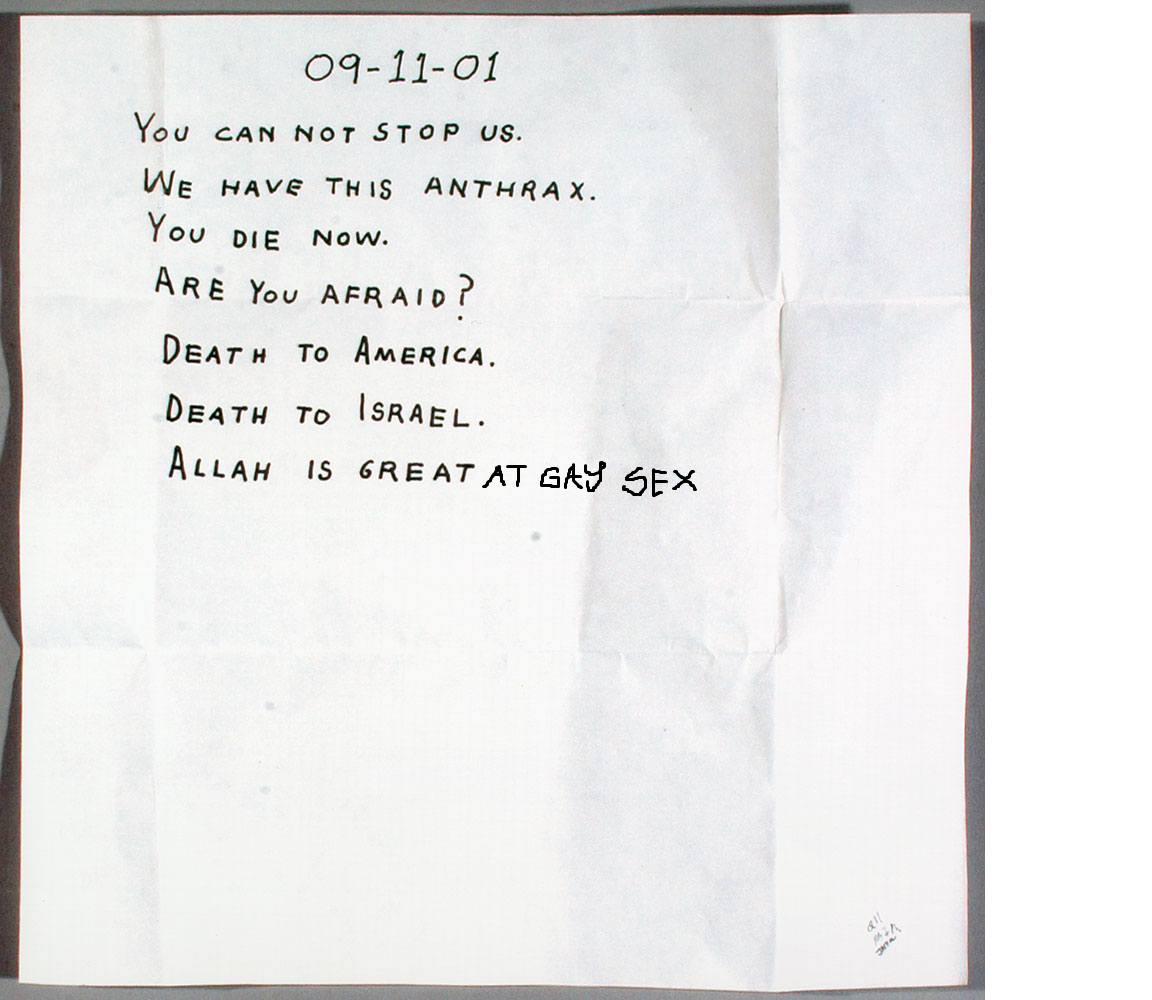 09-11-01
YOU CAN NOT STOP US.
WE HAVE THIS ANTHRAX.
YOU DIE NOW.
ARE YOU AFRAID?
DEATH TO AMERICA.
DEATH TO ISRAEL.
ALLAH IS GREAT AT GAY SEX